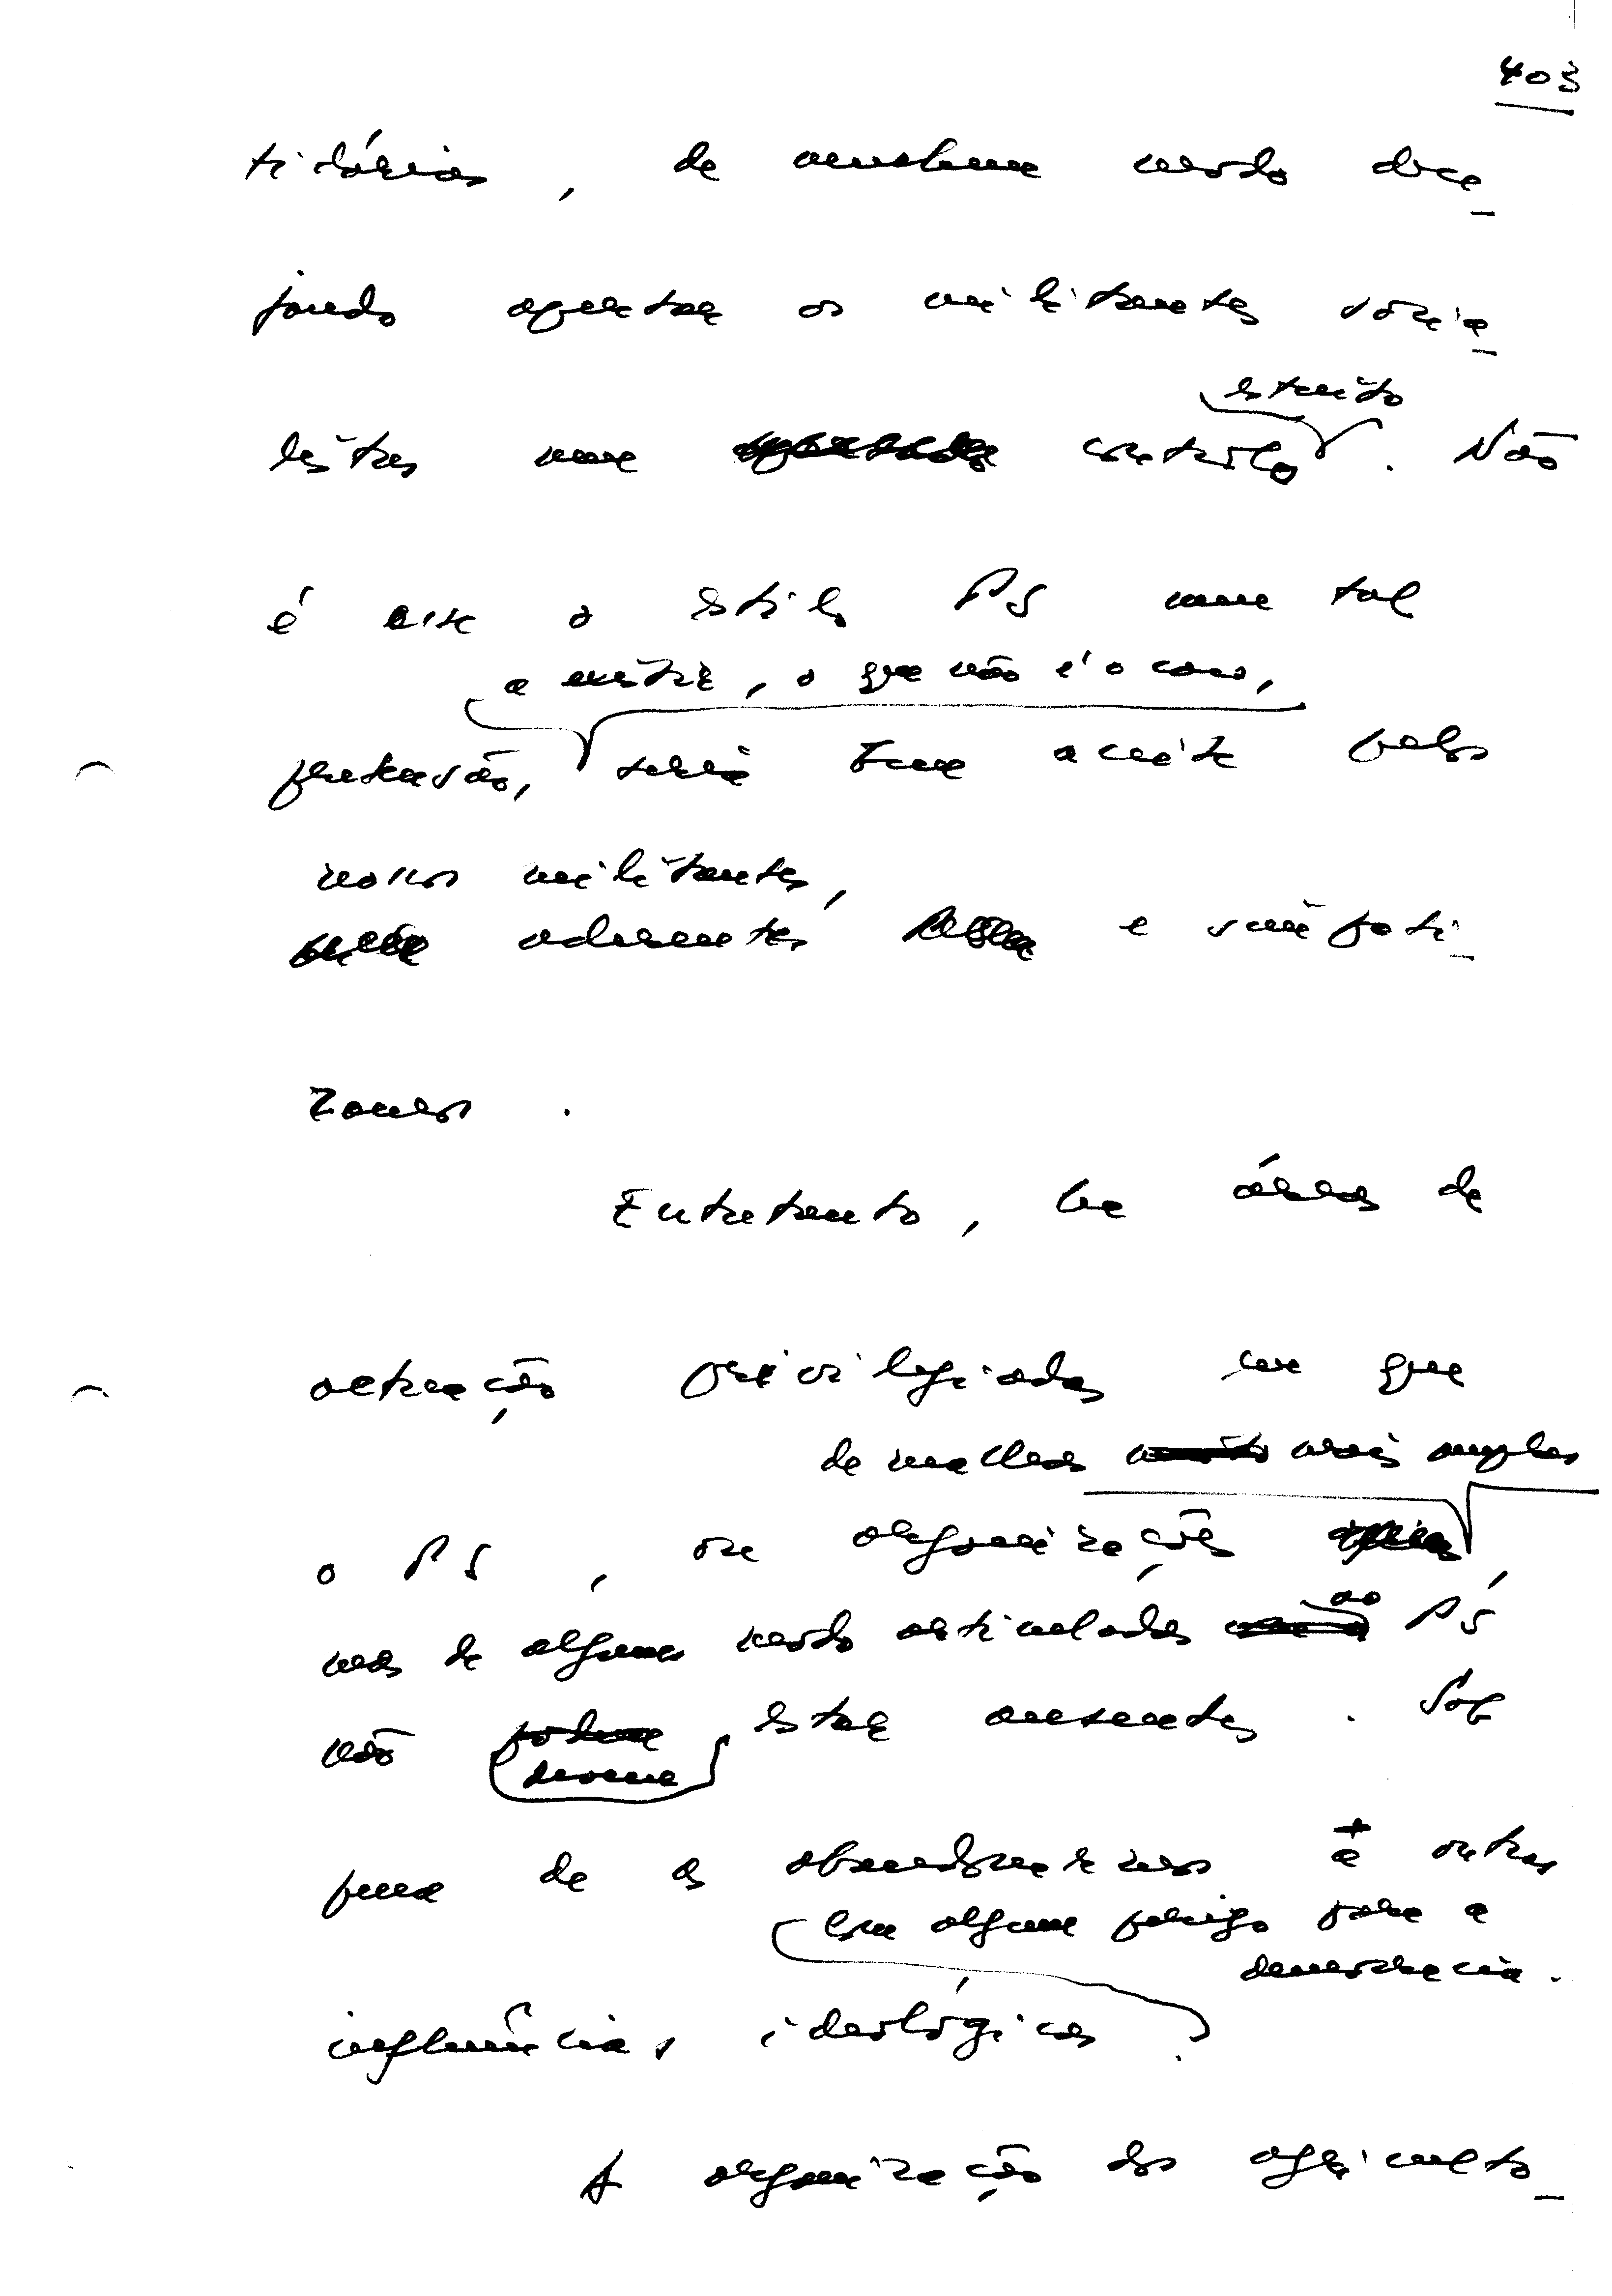 403
tidárias, de nenhum modo dese_
jando apertar os militantes socia_
listas num controlo estreito. Não
é esse o estilo PS nem tal
a existir, o que não é o caso,
pretensão, seria bem aceite pelos
nossos militantes,
aderentes e simpati_
zantes.
Entretanto, há áreas de
actuação privilegiadas em que
de malhas mais amplas
o PS, ou organizações,
mas de algum modo articuladas ao PS
não devem estar ausentes. Sob
pena de as abandonarmos a outras
com algum perigo para a
democracia.
influências, ideológicas.
A organização dos agriculto_